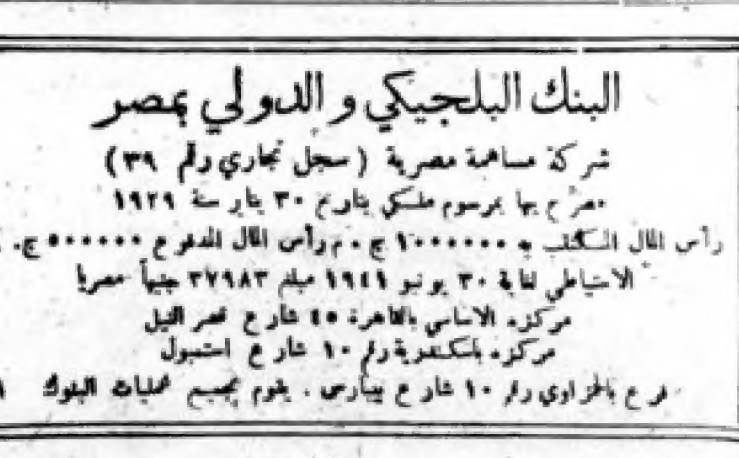 البنك البلجيكي و الدولي بمصر
شركة مساهمة مصرية ( سجل تجاري رقم ٣٩ )
مصرح بها بمرسوم ملكي بتاريخ ٣٠ يناير سنة ١٩٢٩
رأس المال المكتتب به ١٠٠٠٠٠٠ ج . م رأس المال المدفوع ٥٠٠٠٠٠ ج .
الاحتياطي لغاية ٣٠ يونيو ١٩٤١ مبلغ ٣٧٩٨٣ جنيهاً مصريا
مركزه الاساسي بالقاهرة ٤٥ شارع قصر النيل
مركزه باسكندرية رقم ١٠ شارع استمبول
فرع بالحزاوي رقم ١٠ شارع بيبارس . يقوم بجميع عمليات البنوك